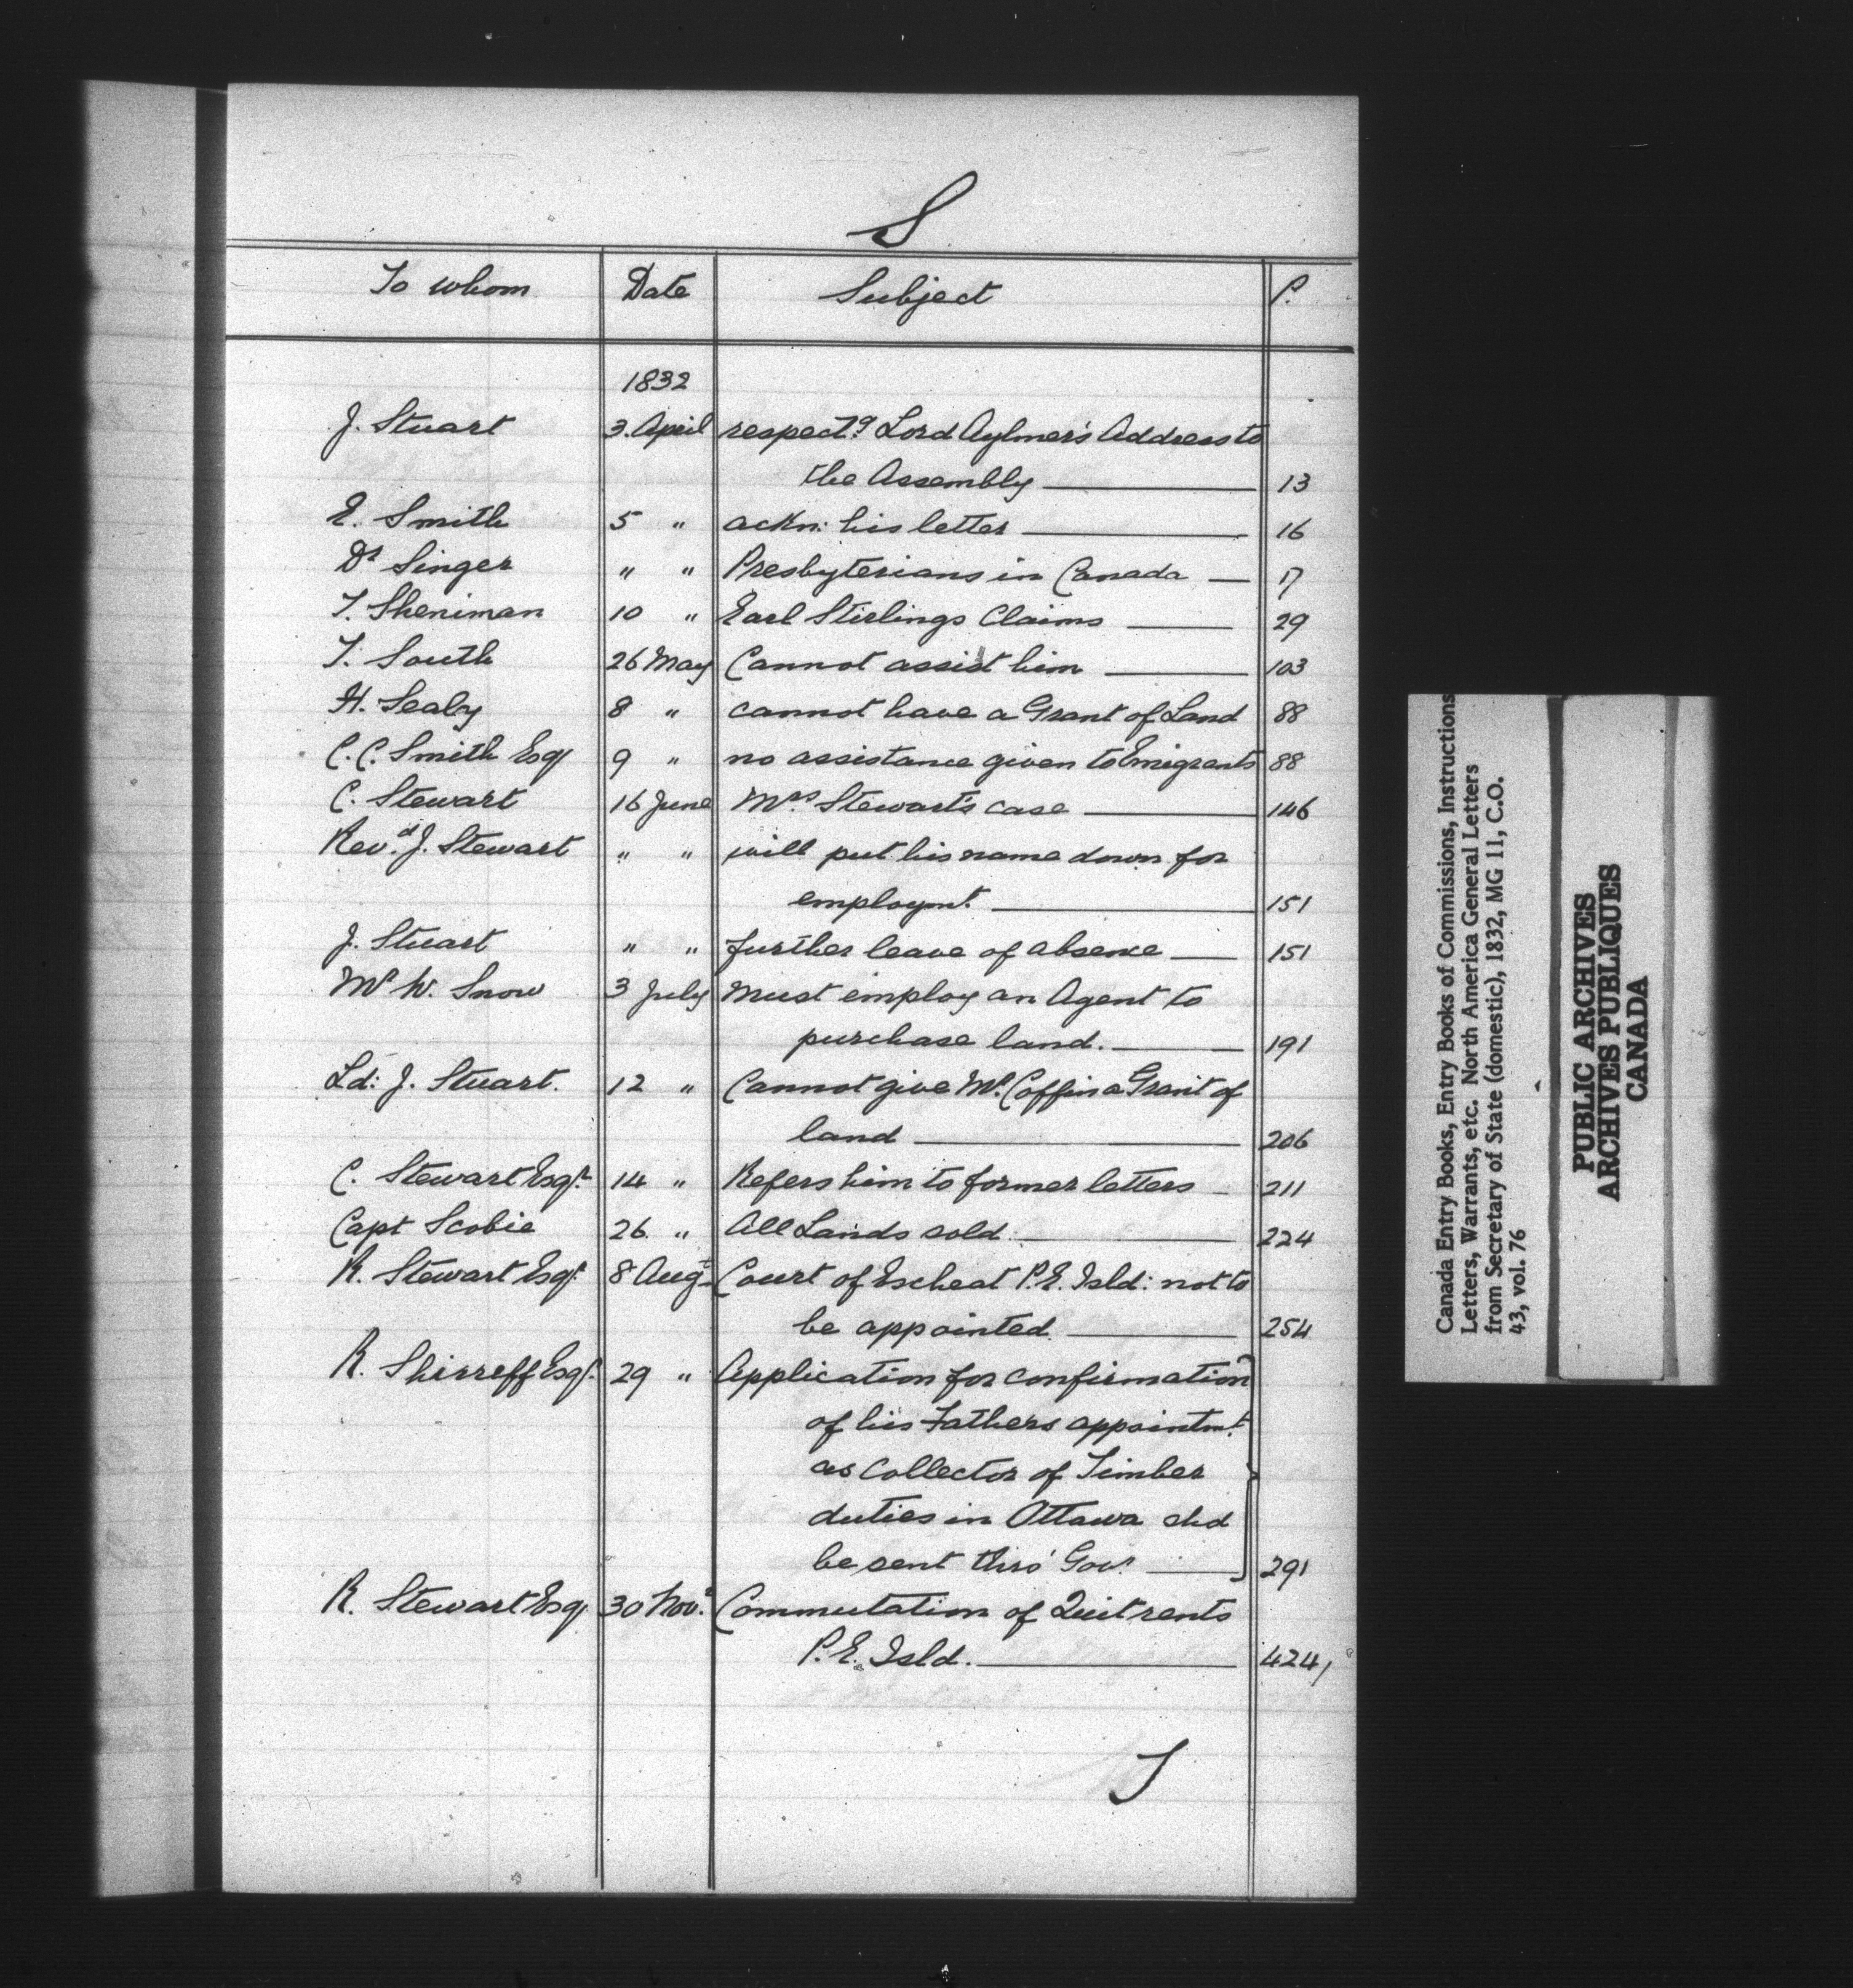 S
To whom Date Subject P.
1832
J. Stuart 3. April respectg Lord Aylmer's Address to
the Assembly 13
E. Smith 5 " ackn: his letter 16
Dr Singer " " Presbyterians in Canada 17
T. Sheniman 10 " Earl Stirlings Claims 29
T. South 26 May Cannot assist him 103
H. Sealy 8 " cannot have a Grant of Land 88
C. C. Smith Esq 9 " no assistance given to Emigrants 88
C. Stewart 16 June Mrs. Stewart's case 146
Revd. J. Stewart " " will put his name down for
employmt. 151
J. Stuart " " further leave of absence 151
Mr W. Snow 3 July Must employ an Agent to
purchase land. 191
Ld: J. Stuart. 12 " Cannot give Mr. Coffin a Grant of
land 206
C. Stewart Esqr. 14 " Refers him to former letters 211
Capt Scobie 26. " All Lands sold 224
R. Stewart Esqr. 8 Augt Court of Escheat P.E. Isld: not to
be appointed 254
R. Shirreff Esqr. 29 " Application for confirmation
of his Fathers appointmt.
as Collector of Timber
duties in Ottawa shd
be sent thro' Govr. 291
R. Stewart Esq 30 Novr. Commutation of Quit rents
P.E. Isld. 424
T
Canada Entry Books, Entry Books of Commissions, Instructions
Letters, Warrants, etc. North America General Letters
from Secretary of State (domestic), 1832, MG 11, C.O.
43, vol. 76
PUBLIC ARCHIVES
ARCHIVES PUBLIQUES
CANADA